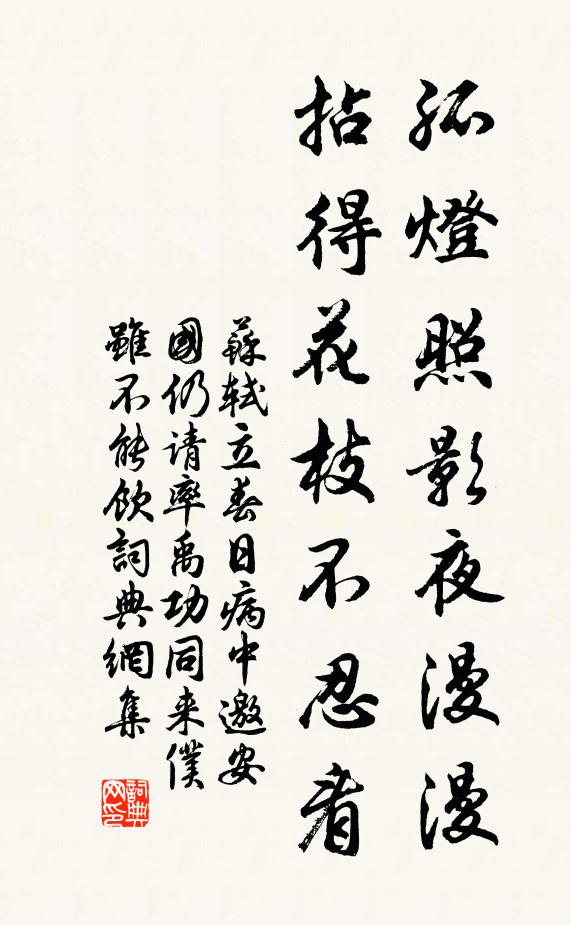 孤燈照影夜漫漫
拈得花枝不忍看
蘇軾立春日病中邀安
國仍请率禹功同来僕
雖不能飲詞典網集
詞典
网印